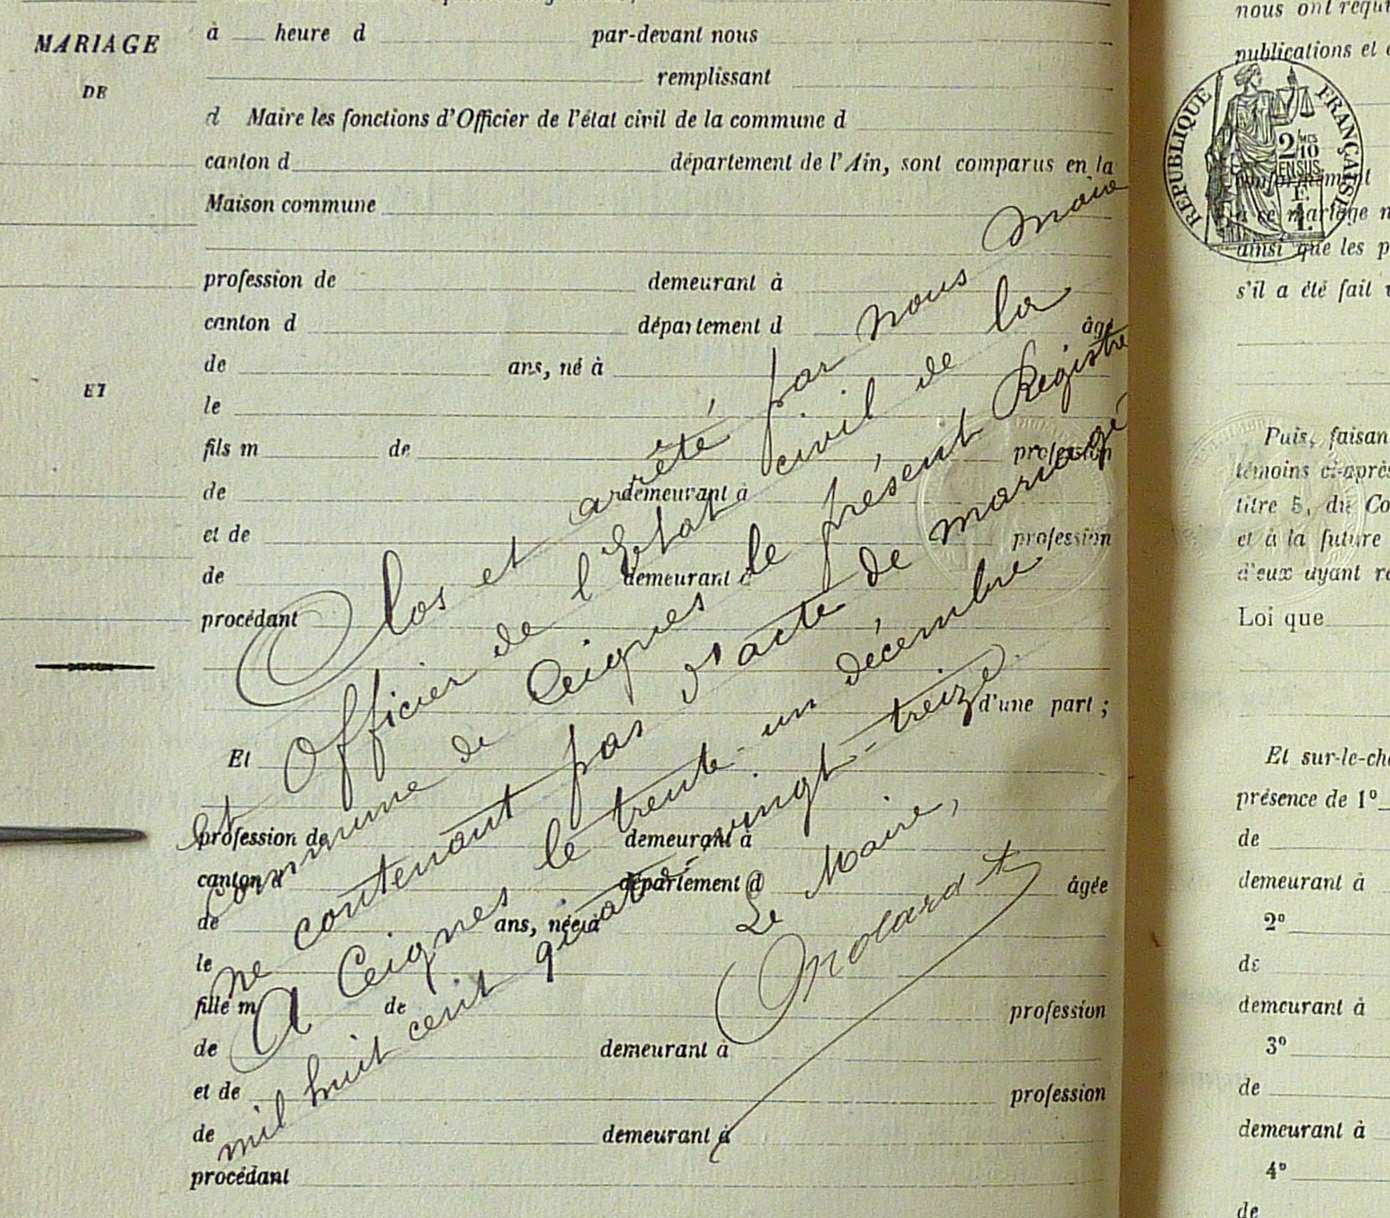 MARIAGE
DE
ET
à heure d par-devant nous
remplissant
d Maire les fonctions d'Officier de l'état civil de la commune d
canton d département de l'Ain, sont comparus en la
Maison commune
profession de demeurant à
canton d département d âgé
de ans, né à
le
fils m de profession
de demeurant à
et de profession
de demeurant à
procédant
d'une part ;
Et
profession de demeurant à
canton d département d âgée
de ans, née à
le
fille m de profession
de demeurant à
et de profession
de demeurant à
procédant
Clos et arrêté par nous Maire
et Officier de l'Etat civil de la
commune de Ceignes le présent Registre
ne contenant pas d'acte de mariage
A Ceignes le trente-un décembre
mil huit cent quatre-vingt-treize.
Le Maire,
nous ont requis
publications et
RÉPUBLIQUE FRANÇAISE
2/10
EN SUS
ce mariage
ainsi que les
s'il a été fait
Puis, faisan
témoins ci-après
titre 5, du Co
et à la future
d'eux ayant ré
Loi que
Et sur-le-ch
présence de 1°
de
demeurant à
2°
de
demeurant à
3°
de
demeurant à
4°
de